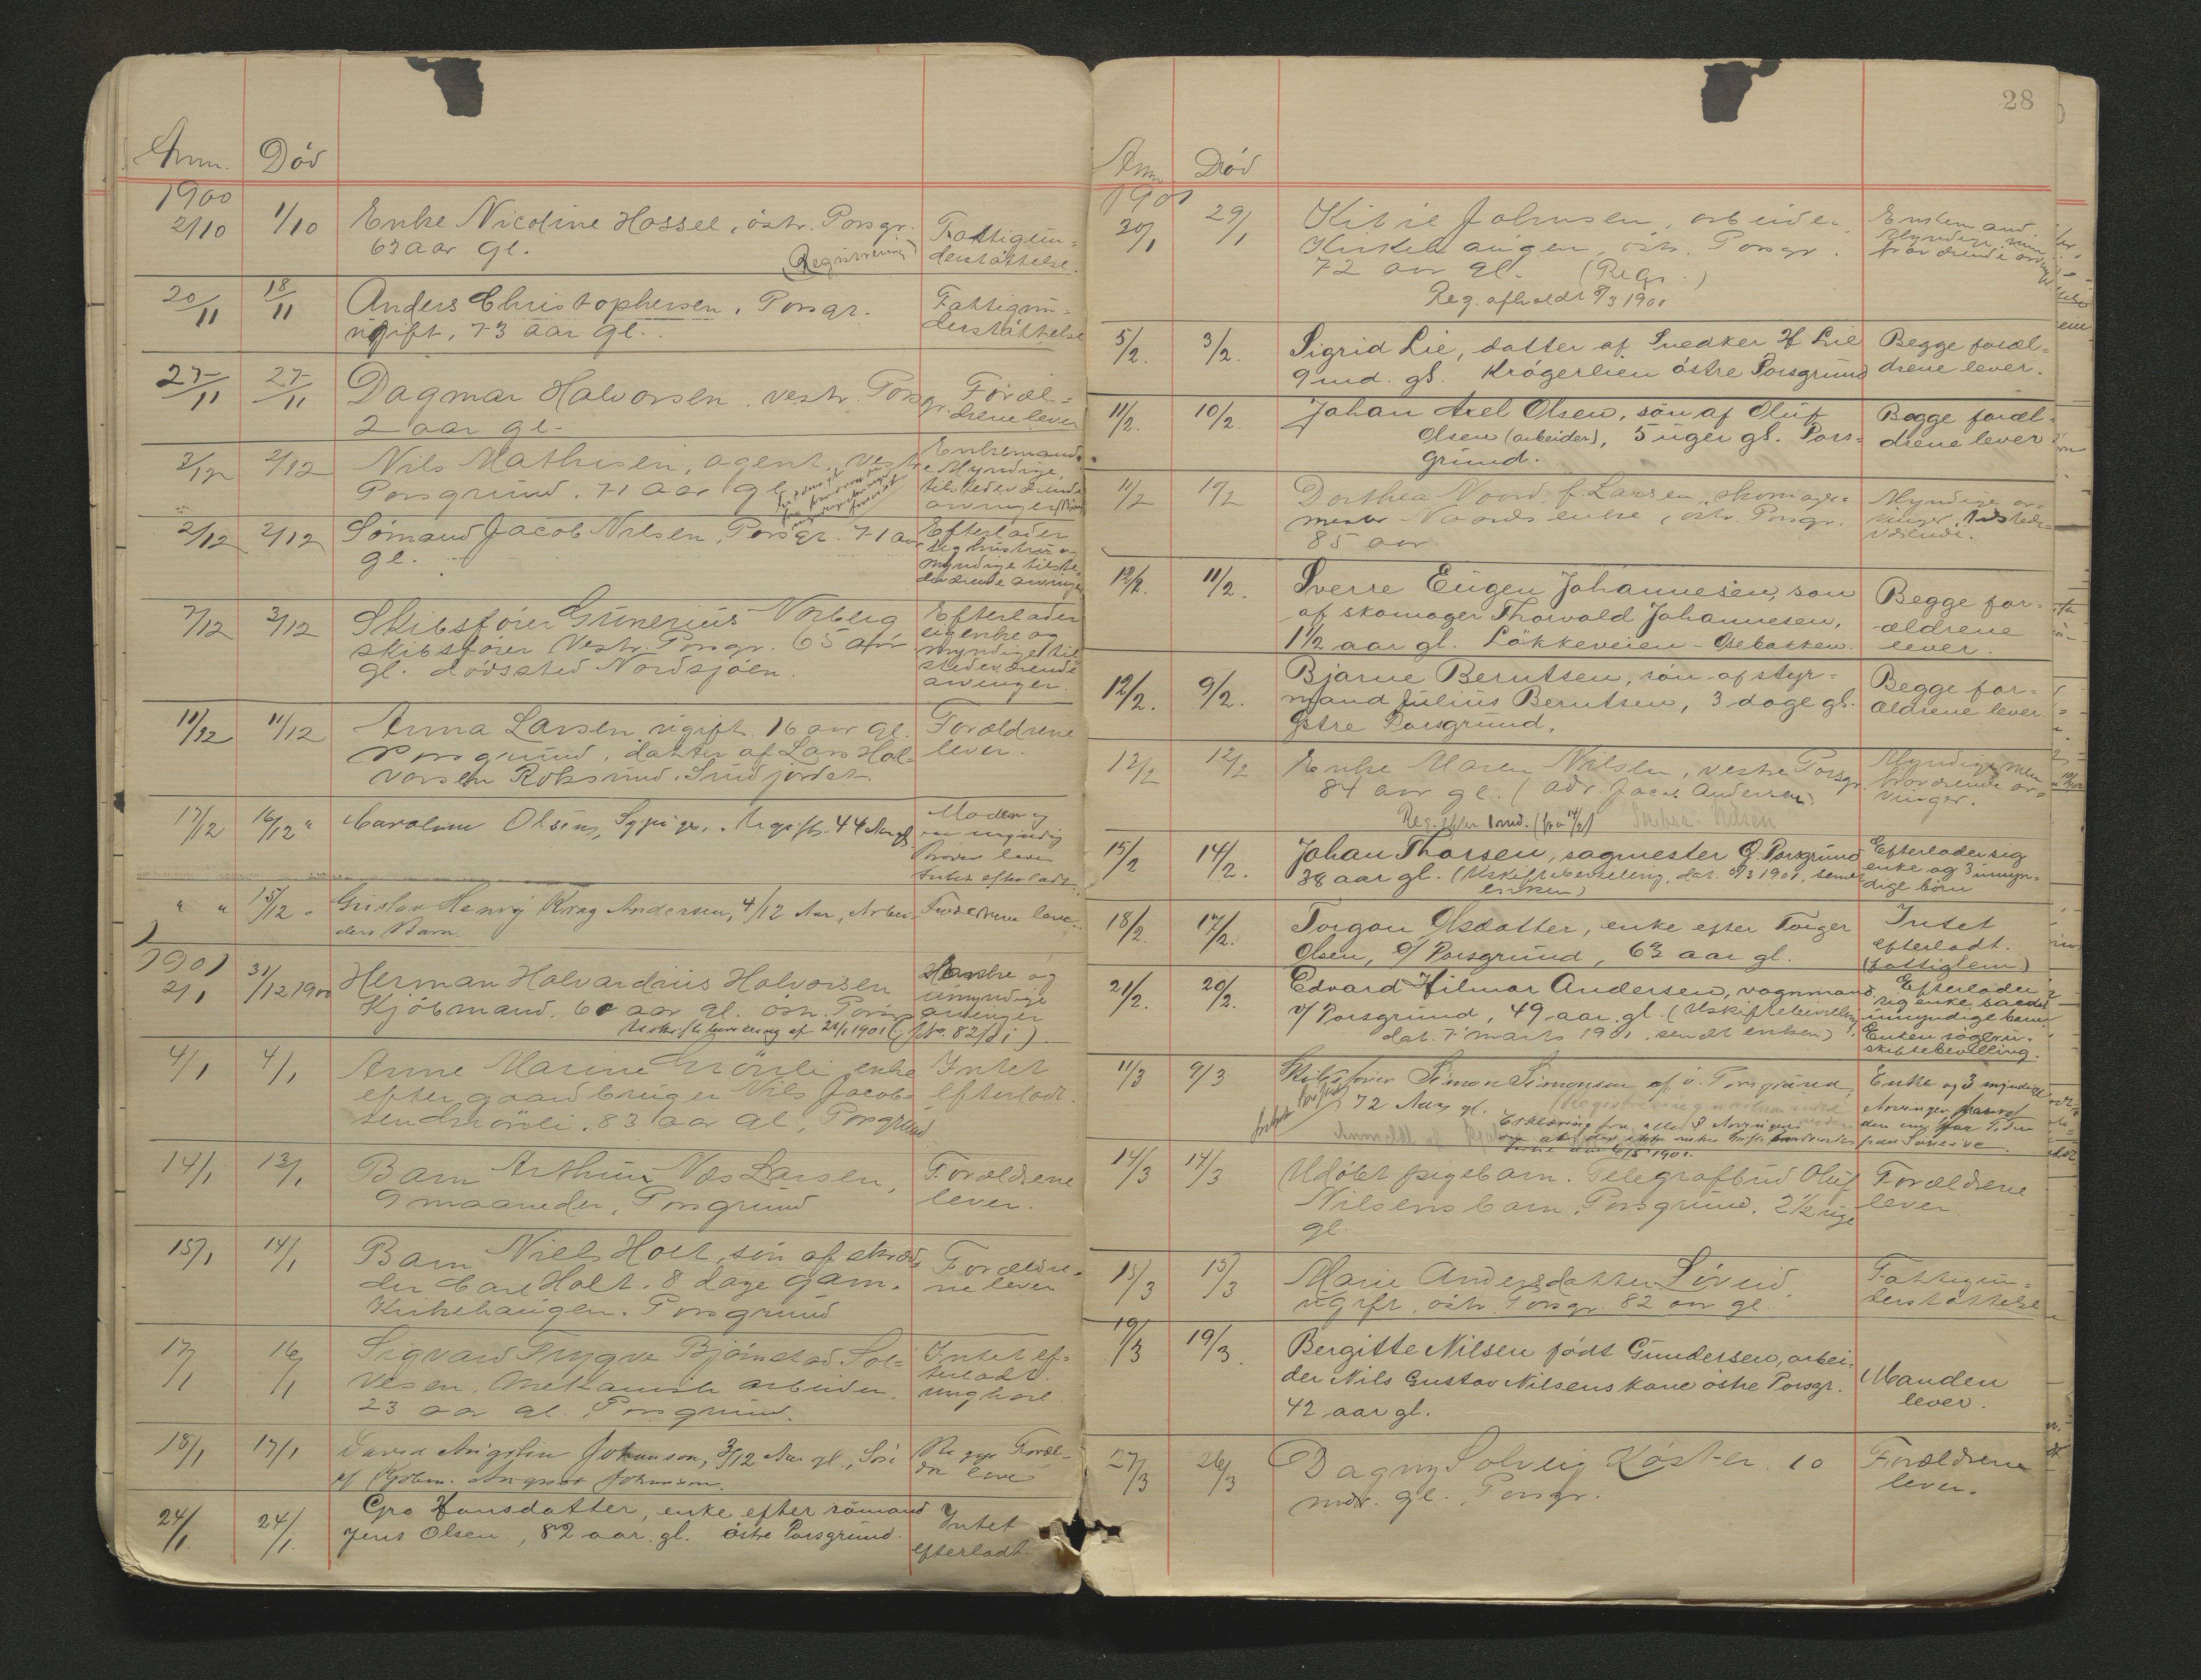 Anm. Död
1900
2/10 1/10 Enke Nicoline Hassel, östr. Porsgr. Fattigün=
63 aar gl. (Registrering) derstöttelse.
20/11 18/11 Anders Christophersen, Porsgr. Fattigün=
ügift, 73 aar gl. derstöttelse
27/11 27/11 Dagmar Halvorsen, vestr. Porsgr. Foræl=
2 aar gl. drene lever
2/12 2/12 Nils Mathisen, agent, vestre Enkemand.
Porsgründ. 71 aar gl. Myndige
tilstedeværende
arvinger
2/12 2/12 Sömand Jacob Nilsen, Porsgr. 71 aar Efterlader
gl. sig hüstrü og
myndige tilste-
deværende arvinger
7/12 3/12 Skibsförer Günerius Norberg Efterlader
skibsförer Vestr. Porsgr. 65 aar sig enke og
gl. dödssted Nordsjöen. myndige til
stedeværende
arvinger.
11/12 11/12 Anna Larsen, ügift. 16 aar gl. Forældrene
Porsgründ, datter af Lars Hal= lever.
vorsen
17/12 16/12 " Caroline Olsen, Sypige, Ugift. 44 Aar gl. Moder og
en myndig
Broder lever
Intet efterladt
" " 15/12 " Gustav Henry Krag Andersen, 4/12 Aar, Arbei- Forældrene lever.
ders Barn.
1901
2/1 31/12 1900 Herman Halvardius Halvorsen Enke og
Kjöbmand. 60 aar gl. östr. Porsgr. ümyndige
arvinger
Uskiftebevilling af 21/1 1901 (J.No. 82/01)
4/1 4/1 Anne Marine Grönli enke Intet
efter gaardbrüger Nils Jacob= efterladt.
sen Grönli, 83 aar gl., Porsgründ
14/1 13/1 Barn Arthür Næs Larsen, Forældrene
9 maaneder, Porsgründ lever.
15/1 14/1 Barn Niels Holt, sön af skræd= Forældre=
der Carl Holt. 8 dage gam. ne lever
Kirkehaügen. Porsgründ
17/1 16/1 Sigvard Trygve Björnstad Sol= Intet ef=
vesen, mekanisk arbeider, terladt.
23 aar gl. Porsgründ. üngkarl
18/1 17/1 David Aügüstin Johanson, 3/12 Aar gl., Sön Begge Foræl-
af Kjöbm. Johanson. dre lever
24/1 24/1 Gro Hansdatter, enke efter sömand Intet
Jens Olsen, 82 aar. gl. östre Porsgründ. efterladt.
28
Anm Död
1901
30/1 29/1 Johnsen, arbeider, Enkemand.
Kirkehaugen, östr. Porsgr. Myndige,
72 aar gl. (Regr.) fraværende
Reg. afholdt 8/3 1901
5/2. 3/2. Sigrid Lie, datter af Snedker H Lie Begge foræl=
9 md. gl. Krögerlien östre Porsgründ drene lever.
11/2. 10/2. Johan Axel Olsen, sön af Olüf Begge foræl=
Olsen (arbeider), 5 üger gl. Pors= drene lever
gründ.
11/2 17/2 Dorthea Noord, f. Larsen, skomager= Myndige ar=
mester Noords enke, östr. Porsgr. vinger, tilstede=
85 aar værende.
12/2. 11/2. Sverre Eügen Johannesen, sön Begge for=
af skomager Thorvald Johannesen, ældrene
1 1/2 aar gl. Lökkeveien - Osebakken. lever.
12/2. 9/2. Bjarne Berntsen, sön af styr= Begge for=
mand Jülius Berntsen, 3 dage gl. ældrene lever.
Östre Porsgrund.
13/2 12/2 Enke Maren Nilsen, vestre Porsgr. Myndige, men
84 aar gl. (adr. Jacob Andersen) fraværende ar=
vinger.
15/2 14/2. Johan Thorsen, sagmester Ö. Porsgründ Efterlader sig
38 aar gl. (Uskiftebevilling, dat. 1901, sendt enke og 3 ümyn=
enken) dige börn
18/2. 17/2. Torgon Olsdatter, enke efter Torger Intet
Olsen, Ö/ Porsgründ, 63 aar gl. efterladt.
(fattiglem)
21/2. 20/2. Edvard Hilmar Andersen, vognmand. Efterlader
V/ Porsgründ, 49 aar. gl. (Uskiftebevilling sig enke samt
dat. 7' marts 1901, sendt enken). ümyndige börn.
Enken sögt ü=
skiftebevilling.
11/3 9/3 Skibsförer Simon Simonsen af ö. Porsgründ, Enke og 3 myndige
72 Aar gl. Arvinger
Erklæring fra alle 3 Arvinger
14/3 14/3 Udöbt pigebarn. Telegrafbud Olüf Forældrene
Nilsens barn, Porsgründ, 2 1/2 üge lever.
gl
15/3 15/3 Marie Andersdatter Fattigün=
ügift, östr. Porsgr. 82 aar gl. derstöttelse
19/3 19/3. Bergitte Nilsen födt Gündersen, arbei=
der Nils Gustav Nilsens kone östre Porsgr. Manden
42 aar gl. lever.
27/3 26/3 Dagny Solveig Köster. 10 Forældrene
mdr. gl. Porsgr. lever.